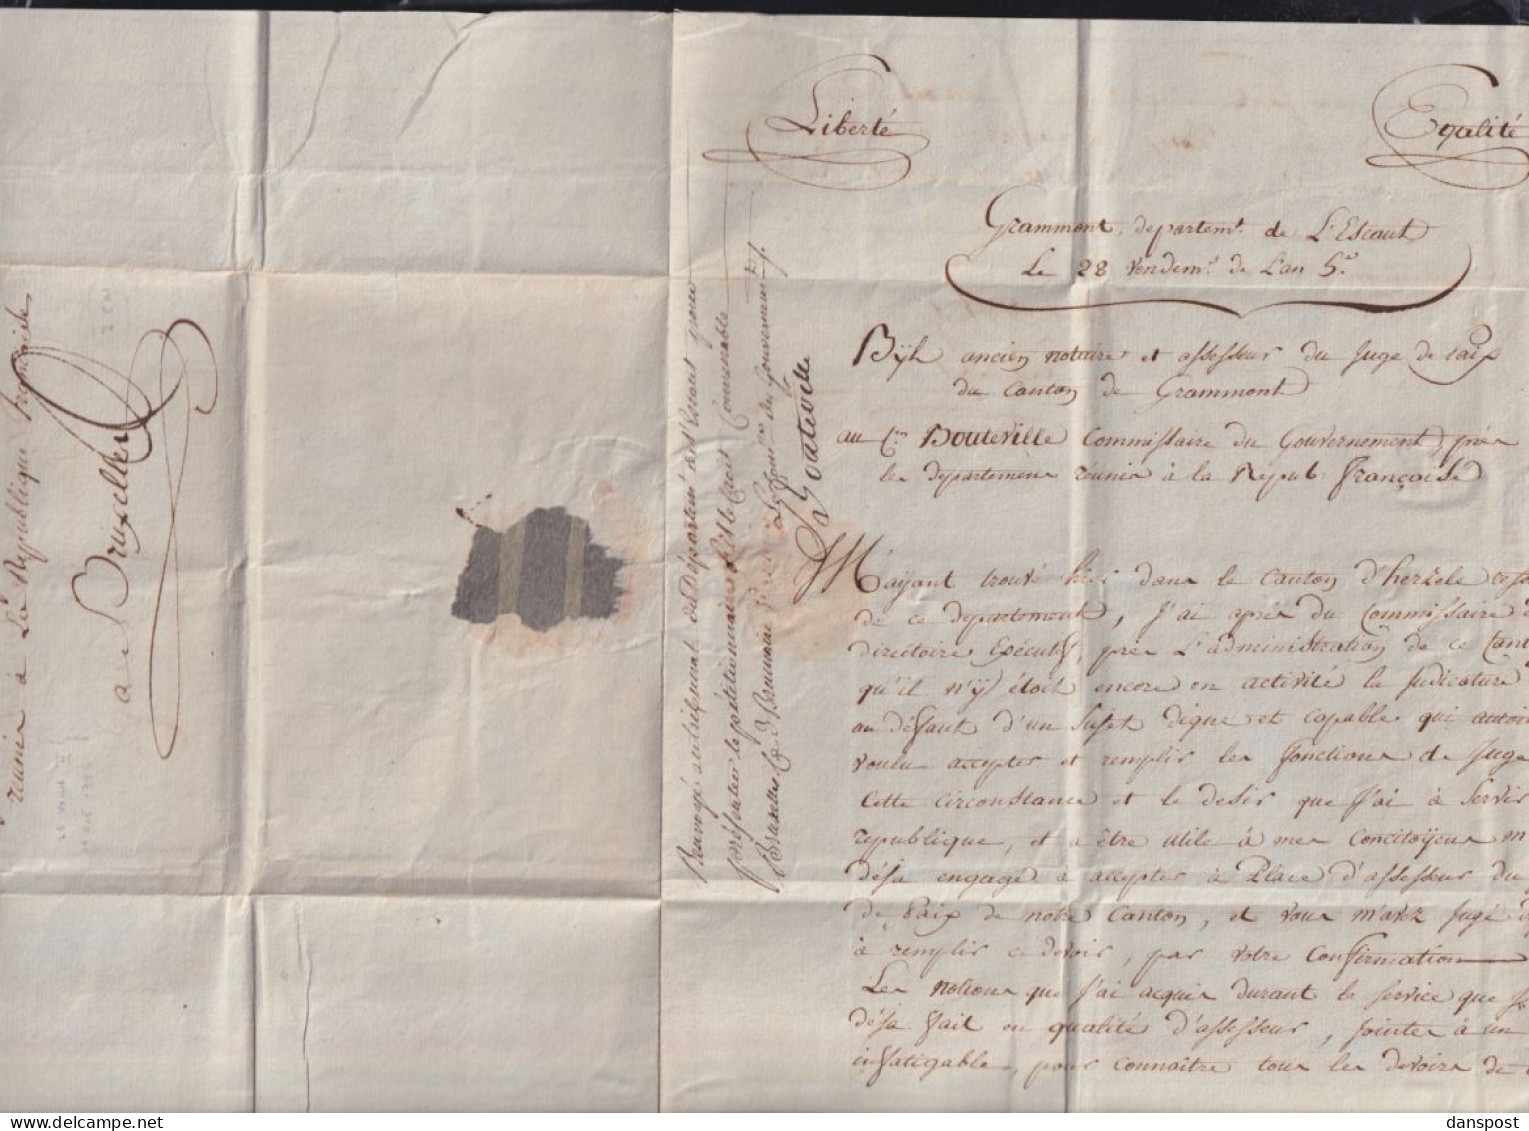 Liberté
Egalité
Grammont, departemt. de L'Escaut
Le 28 vendemre. de L'an 5e.
Bÿl ancien notaire et assesseur du juge de paix
du Canton de Grammont
au Cen. Bouteville Commissaire du Gouvernement, près
les departemens réunis à la Répub. française
M'aÿant trouvé hier dans le canton d'herzele
de ce departement, J'ai apris du Commissaire
directoire Exécutif, près L'administration de ce Cant
qu'il n'ÿ étoit encore en activité la judicature
au défaut d'un sujet digne et capable qui
voulu accepter et remplir les fonctions de juge
Cette circonstance et le desir que J'ai à servir
république, et à être utile à mes concitoÿens m
déja engagé à accepter la Place d'assesseur du
de Paix de notre Canton, et vous m'avez jugé
à remplir ce devoir, par votre confirmation
Les notions que J'ai acquis durant le service que
déja fait en qualité d'assesseur, jointes à un
infatigable, pour connaître tous les devoirs de
Renvoyé au du Département de l'Escaut pour
présenter le petitionnaire s'il le croit Convenable
Bruxelles le Brumaire Le Comre. du Gouvernement
Bouteville
réunis à La République française
a Bruxelles
danspost